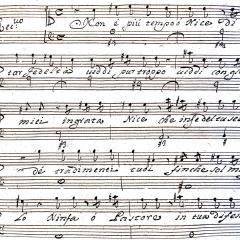 Rec.vo
Non è più tempo ò Nice di
tar fedeltà viddi pur troppo viddi con gl'
miei ingrata Nice che infedel tu sei
de tradimenti tuoi finche sol m
lo Ninfa ò Pastore in tua difes